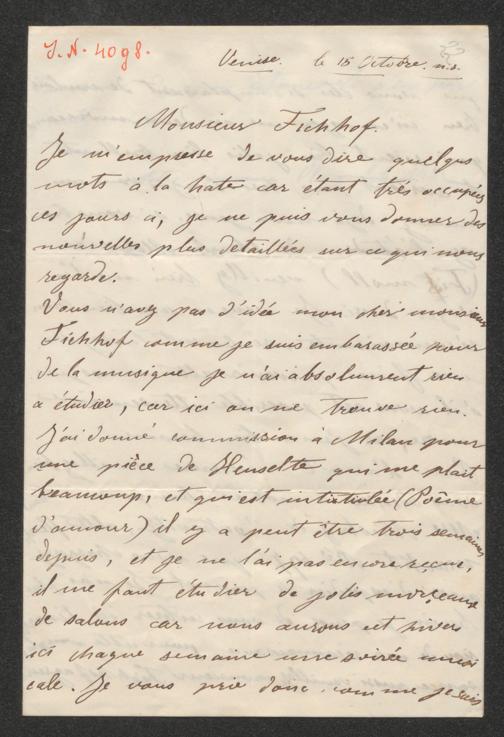 J.N. 4098.
Venise. le 15 Octobre. n.s.
Monsieur Fichhof.
Je m'empresse de vous dire quelques
mots à la hate car étant très occupée
ces jours ci, je ne puis vous donner des
nouvelles plus detaillées sur ce qui nous
regarde.
Vous n'avez pas d'idée mon cher monsieur
Fichhof comme je suis embarassée pour
de la musique je n'ai absolument rien
a étudier, car ici on ne trouve rien.
J'ai donné commission à Milan pour
une pièce de Henselte qui me plait
beaucoup, et qui est intitulée (Poëme
d'amour) il y a peut être trois semaines
depuis, et je ne l'ai pas encore reçue,
il me faut étudier de jolis morçeaux
de salons car nous aurons cet hiver
ici chaque semaine une soirée musi
cale. Je vous prie donc, comme je suis